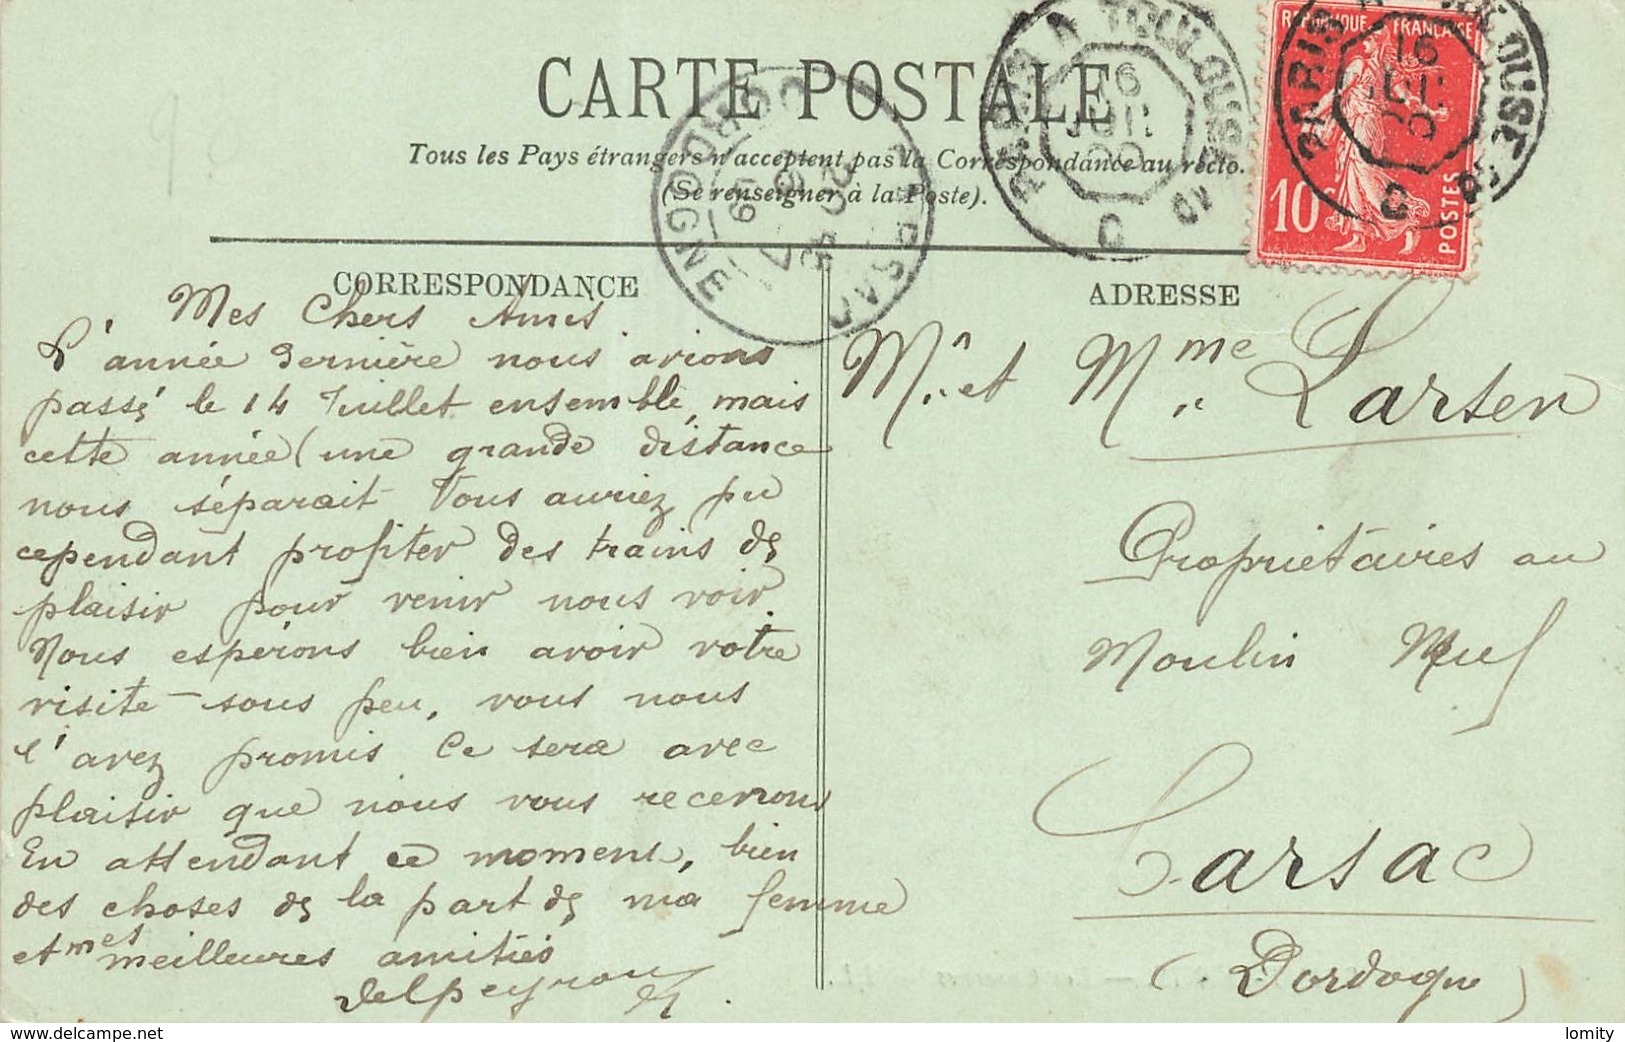 CARTE POSTALE
Tous les Pays étrangers n'acceptent pas la Correspondance au recto.
(Se renseigner à la Poste).
PARIS A TOULOUSE
16
JUIL
C
REPUBLIQUE FRANÇAISE
10c
POSTES
PARIS A TOULOUSE
16
C
CARSAC
DORDOGNE
CORRESPONDANCE
Mes Chers Amis
L'année dernière nous avions
passé le 14 Juillet ensemble, mais
cette année (une grande distance
nous séparait Vous auriez pu
cependant profiter des trains de
plaisir pour venir nous voir.
Nous espérons bien avoir votre
visite sous peu, vous nous
l'avez promis Ce sera avec
plaisir que nous vous recevrons
En attendant ce moment, bien
des choses de la part de ma femme
et mes meilleures amitiés
Delpeyrou
ADRESSE
Mr et Mme
Propriétaires au
Moulin Neuf
Carsac
(Dordogne)
lomity